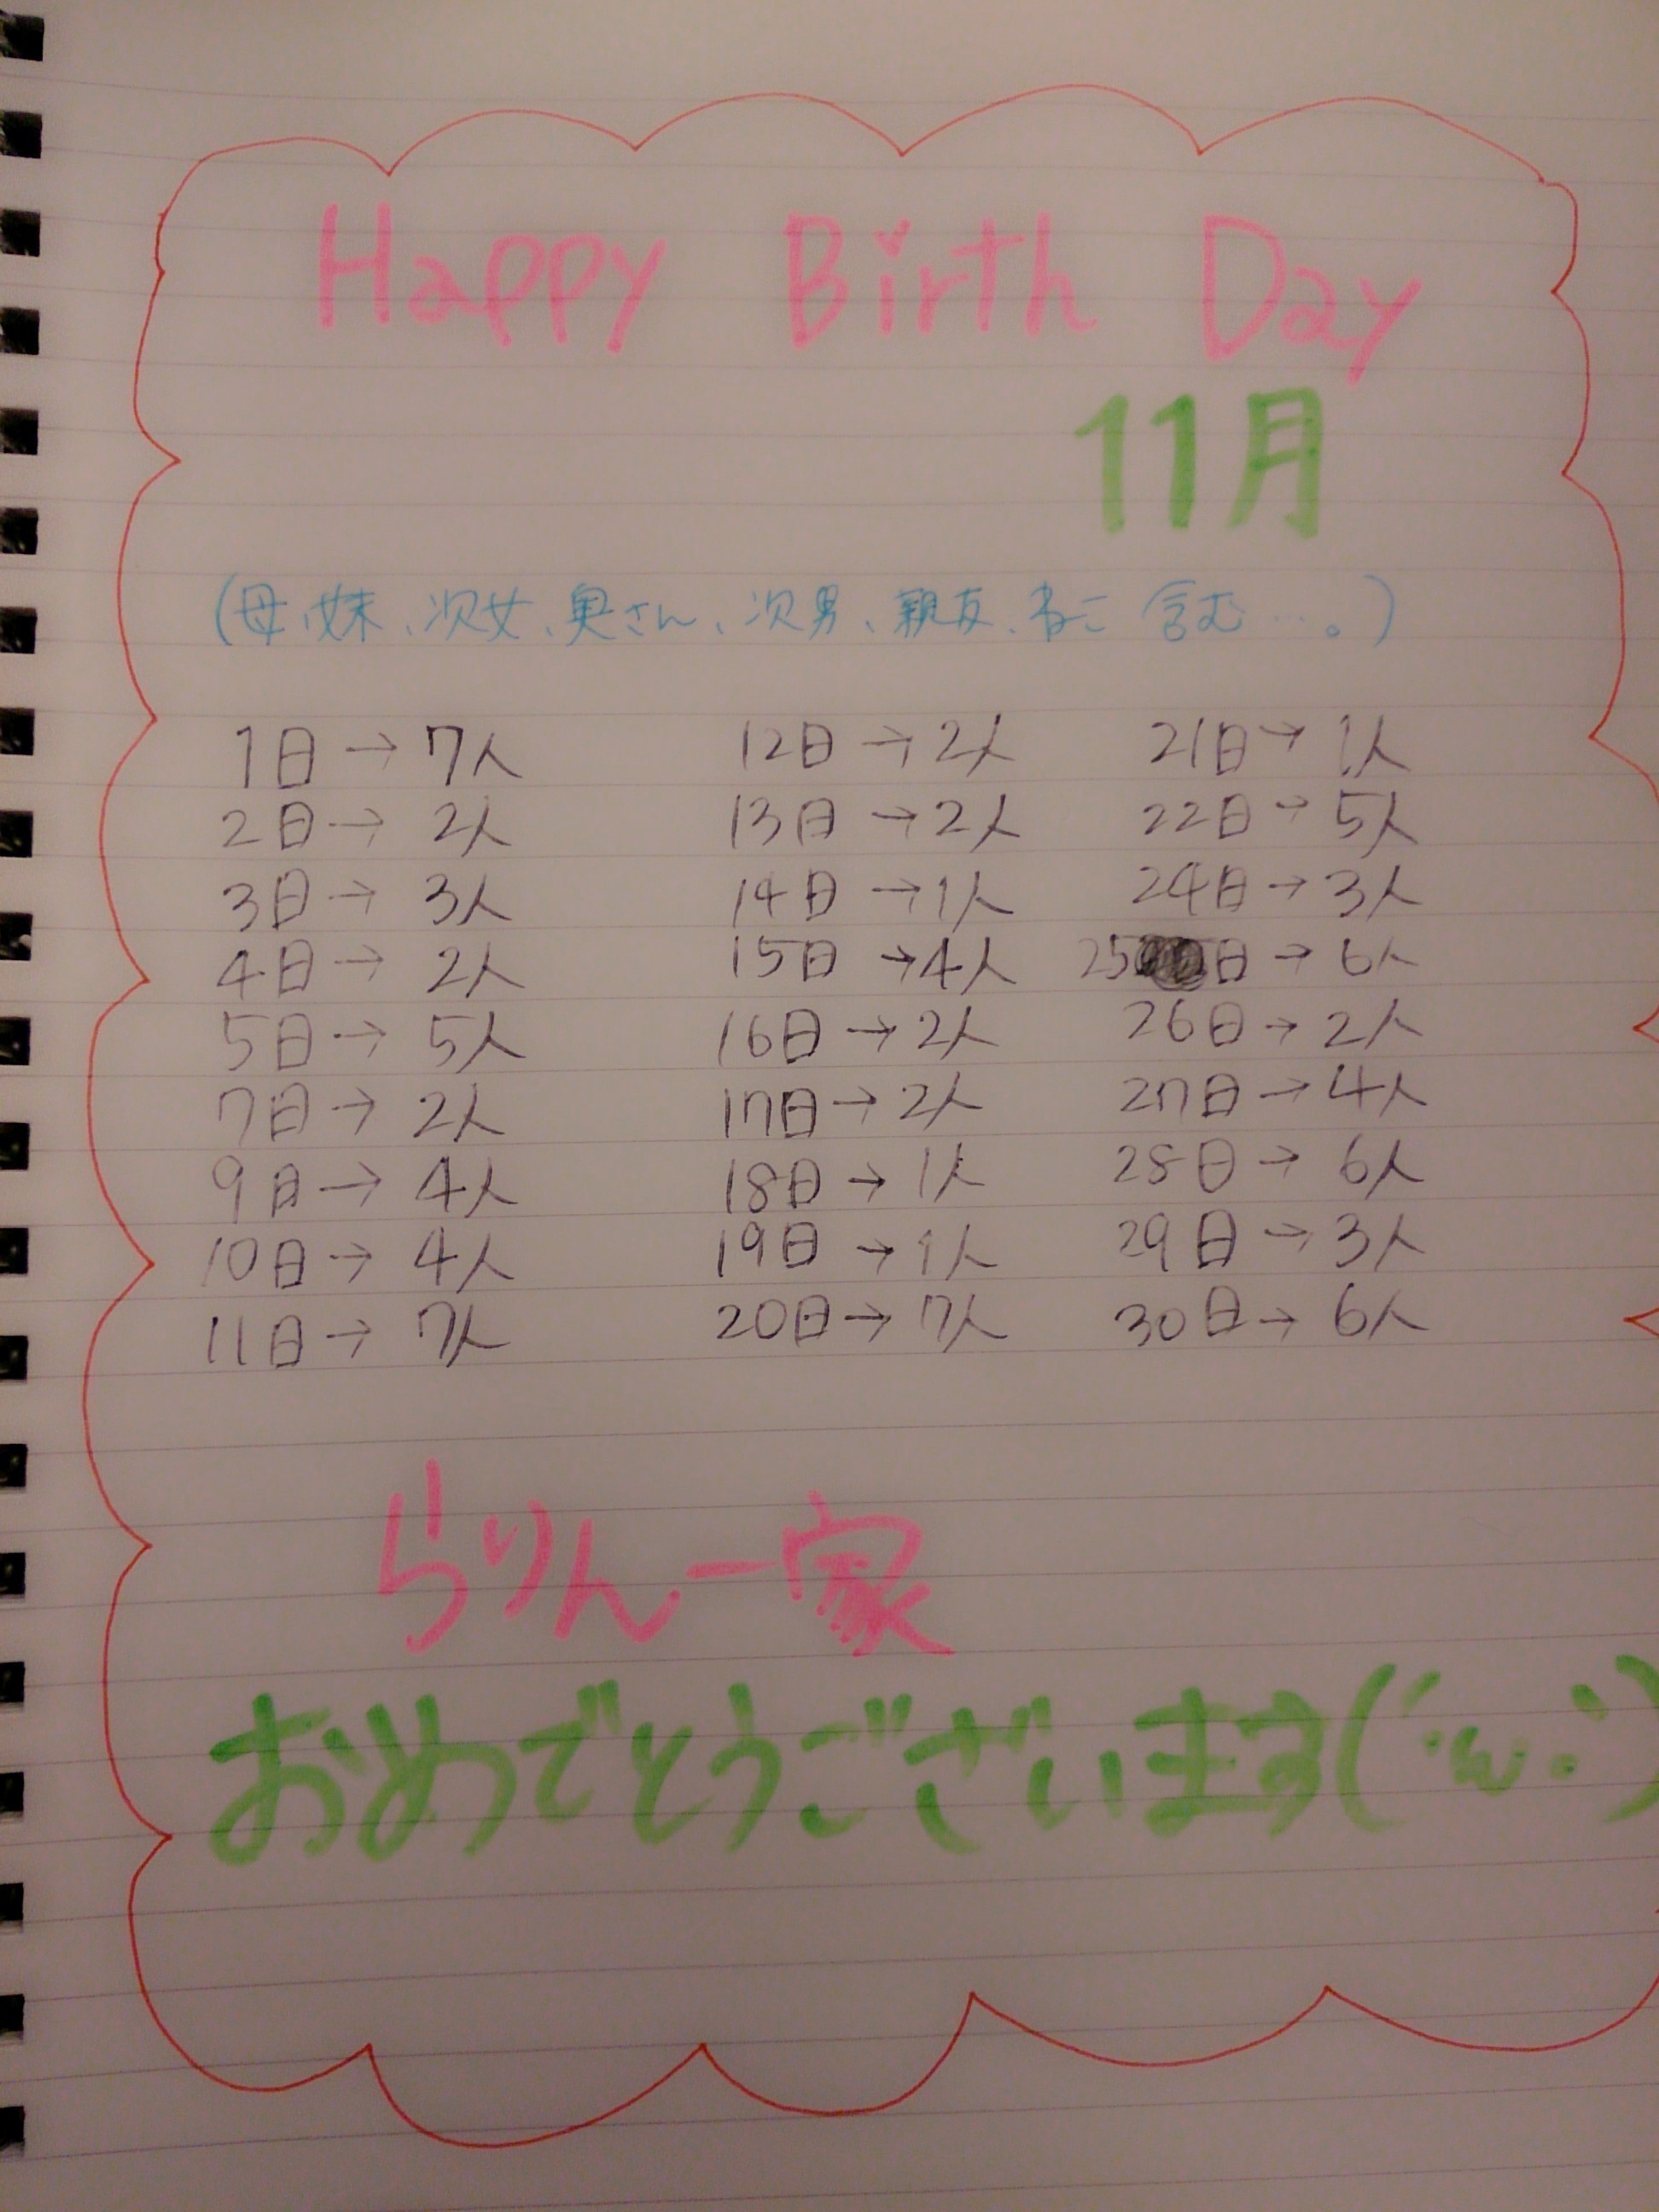 Happy Birth Day
11月
(母、妹、次女、奥さん、次男、親友、ねこ 含む…。)
1日→7人
2日→2人
3日→3人
4日→2人
5日→5人
7日→2人
9日→4人
10日→4人
11日→7人
12日→2人
13日→2人
14日→1人
15日→4人
16日→2人
17日→2人
18日→1人
19日→1人
20日→7人
21日→1人
22日→5人
24日→3人
25日→6人
26日→2人
27日→4人
28日→6人
29日→3人
30日→6人
らりん一家
おめでとうございます(´・ω・`)